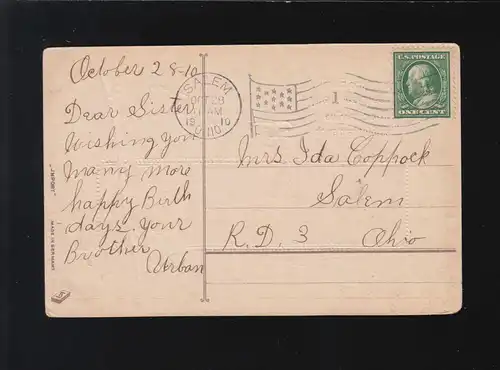 October 28-10
Dear Sister
Wishing you
many more
happy Birth
days. your
Brother
Urban
SALEM
OCT 28
AM
1910
OHIO
1
U.S. POSTAGE
ONE CENT
Mrs Ida Coppock
Salem
R.D. 3 Ohio
"IMPORT"
MADE IN GERMANY